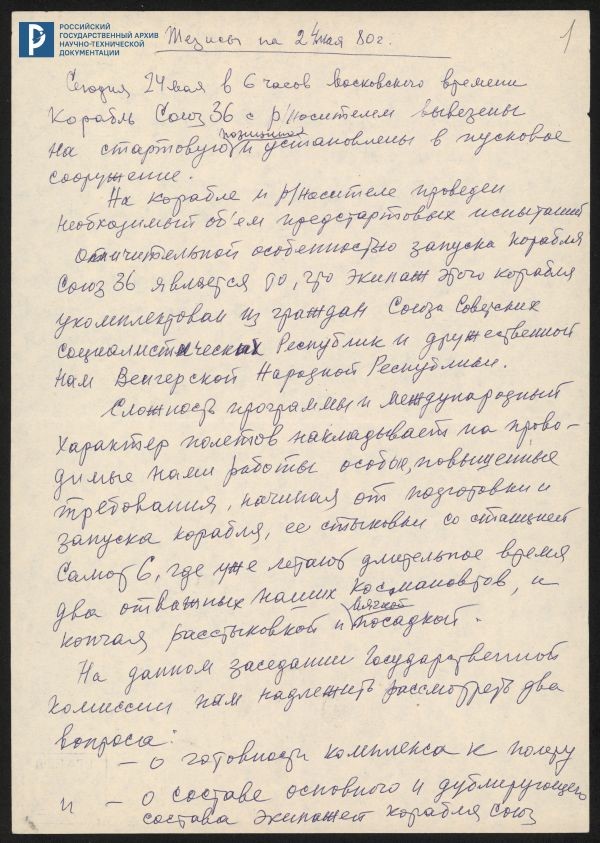 РОССИЙСКИЙ
ГОСУДАРСТВЕННЫЙ АРХИВ
НАУЧНО-ТЕХНИЧЕСКОЙ
ДОКУМЕНТАЦИИ
1
Тезисы на 24 мая 80 г.
Сегодня 24 мая в 6 часов Московского времени
Корабль Союз 36 с р/носителем вывезены
на стартовую позицию и установлены в пусковое
сооружение.
На корабле и р/носителе проведен
необходимый об'ем предстартовых испытаний
Отличительной особенностью запуска корабля
Союз 36 является то, что экипаж этого корабля
укомплектован из граждан Союза Советских
социалистических Республик и дружественной
нам Венгерской Народной Республики.
Сложность программы и международный
характер полетов накладывает на прово-
димые нами работы особые, повышенные
требования, начиная от подготовки и
запуска корабля, ее стыковки со станцией
Салют 6, где уже летают длительное время
два отважных наших космонавтов, и
кончая расстыковкой и мягкой посадкой.
На данном заседании Государственной
комиссии нам надлежить рассмотреть два
вопроса:
– о готовности комплекса к полету
и – о составе основного и дублирующего
состава экипажей корабля Союз